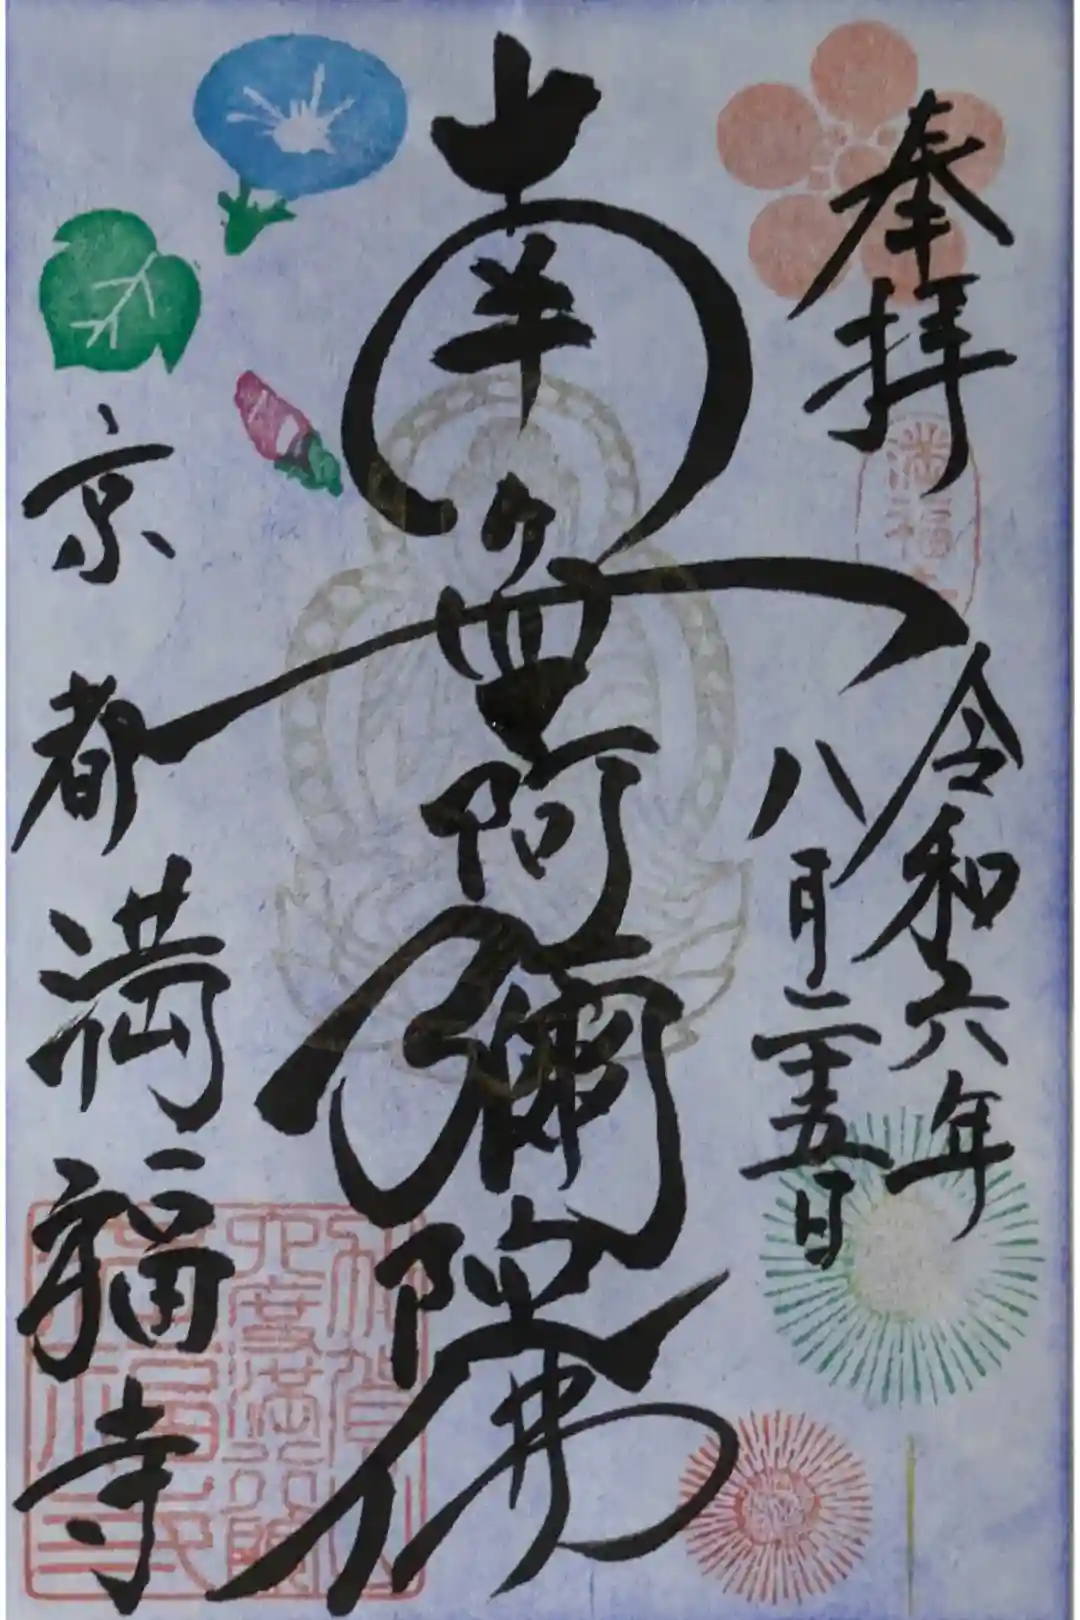 奉拝
令和六年
八月二十五日
南無阿彌陀佛
京都満福寺
満福